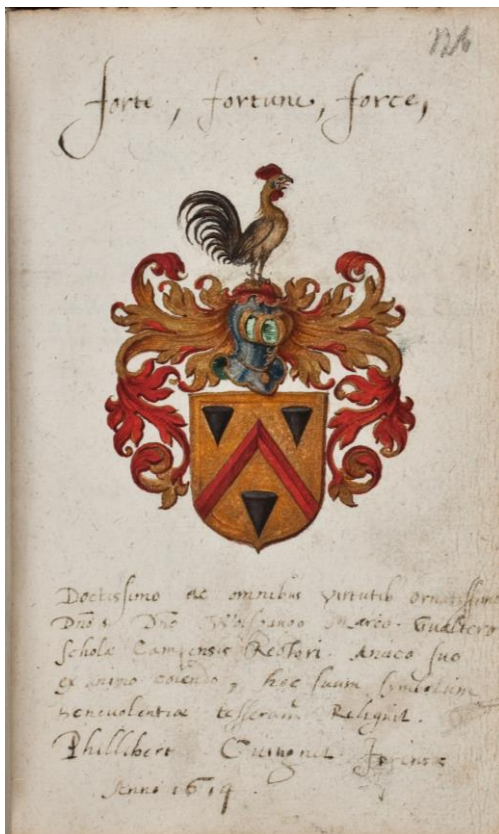 126
forte, fortune, force,
Doctissimo ac omnibus virtutib ornatissimo
Dno s Dno Marco Gualtero
Scholæ Campensis Rectori. Amico suo
ex animo colendo, hoc suum symbolum
benevolentiæ tesseram Reliquit.
Phillibert
Anno 1619